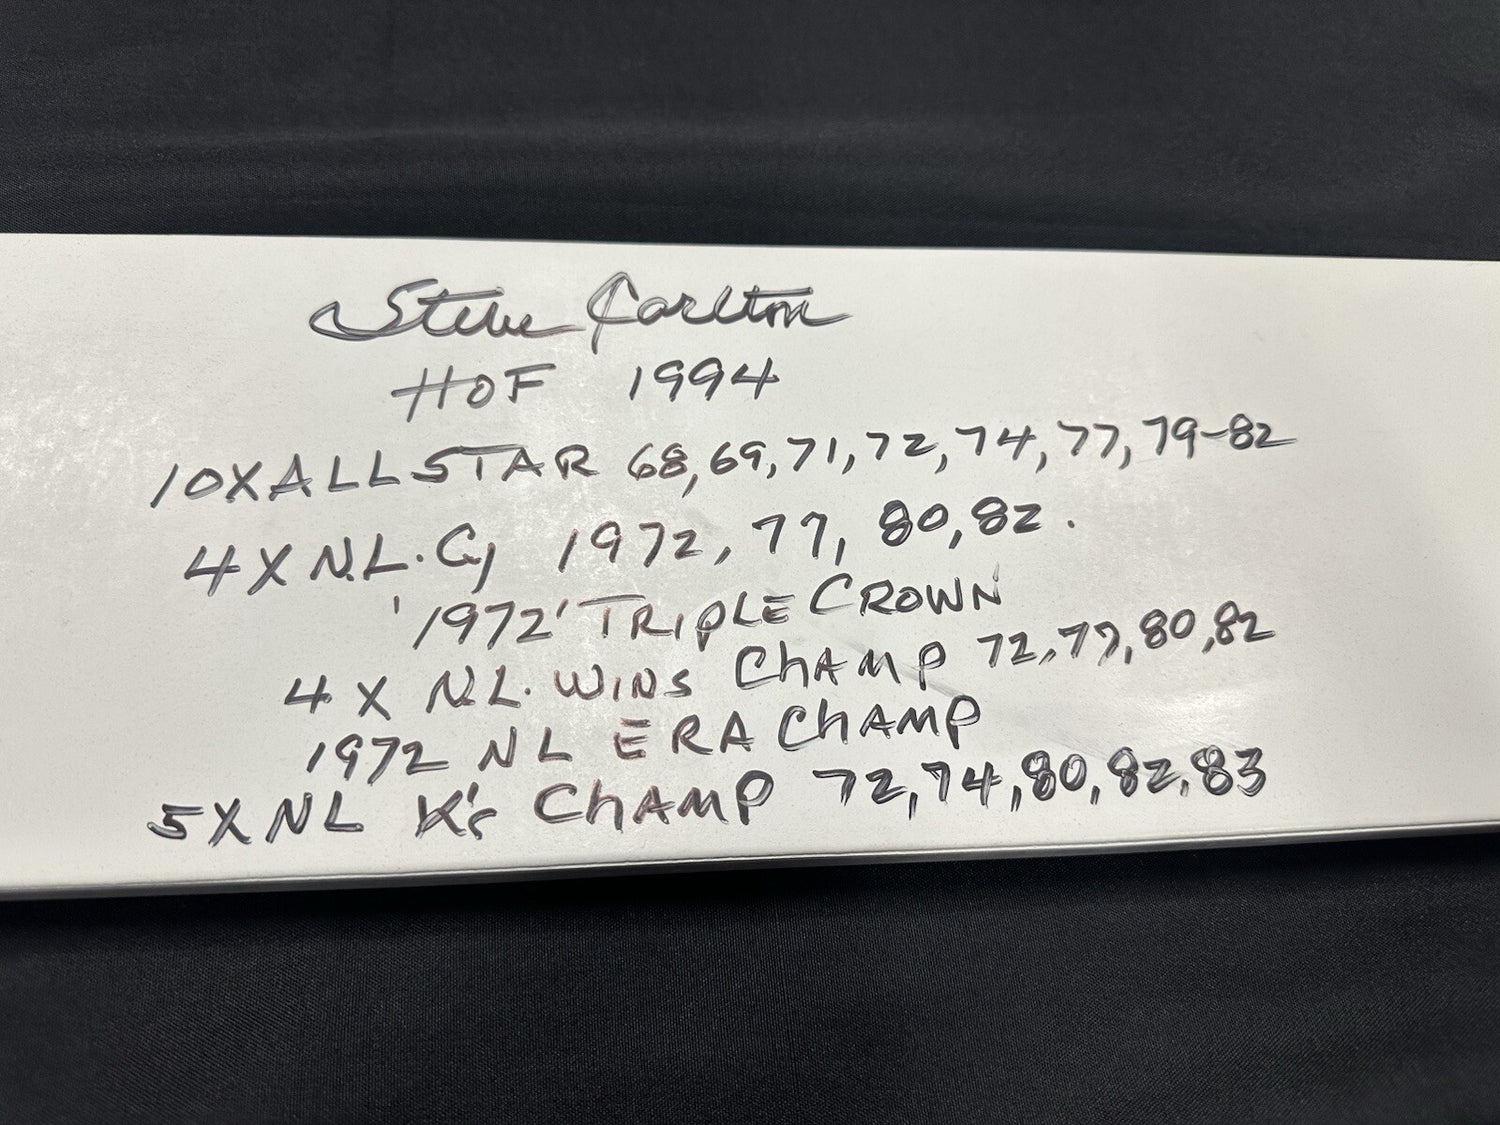 Steve Carlton
HOF 1994
10X ALL STAR 68,69,71,72,74,77,79-82
4X N.L. Cy 1972, 77, 80,82.
'1972' TRIPLE CROWN
4 X N.L. WINS ChAMP 72,77,80,82
1972 NL ERA ChAMP
5X NL K's ChAMP 72,74,80,82,83